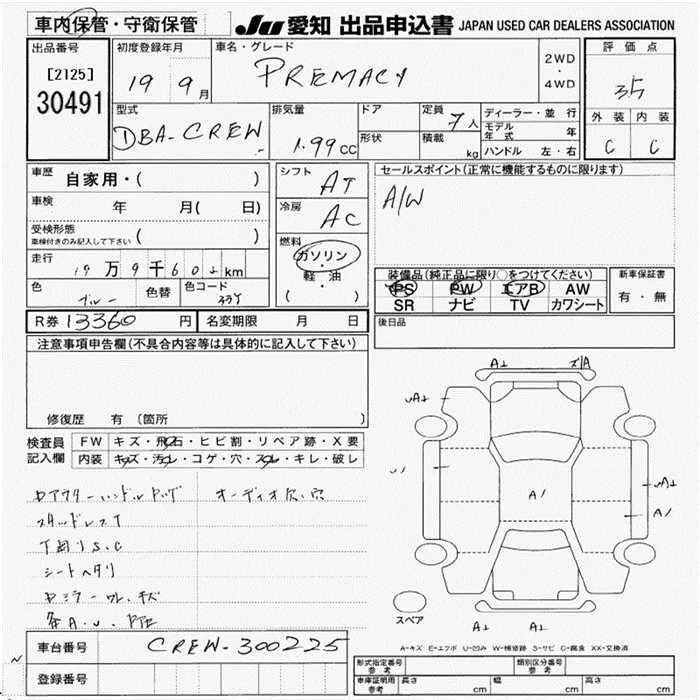 車内保管・守衛保管 JU 愛知 出品申込書 JAPAN USED CAR DEALERS ASSOCIATION
出品番号 初度登録年月 車名・グレード 2WD・4WD 評価点
[2125] 19 9月 PREMACY 35
30491 型式 排気量 ドア 定員 7人 ディーラー・並行 外装 内装
DBA-CREW 1.99cc 形状 積載 kg モデル年式 年 C C
ハンドル 左・右
車歴 自家用・( ) シフト AT セールスポイント(正常に機能するものに限ります)
車検 年 月( 日) 冷房 AC A/W
受検形態 車検付きのみ記入して下さい ( ) 燃料 ガソリン・軽・油 ( )
走行 万9千60 km 装備品(純正品に限り○をつけてください) 新車保証書
色 ブルー 色替 色コード PS PW エアB AW 有・無
SR ナビ TV カワシート
R券 13360 円 名変期限 月 日 後日品
注意事項申告欄(不具合内容等は具体的に記入して下さい)
修復歴 有 (箇所 )
検査員 FW キズ・飛石・ヒビ割・リペア跡・X要
記入欄 内装 キズ・汚レ・コゲ・穴・スレ・キレ・破レ
オーディオ欠
スタッドレスT
シートヘタリ
A上 A上
A1
A1
スペア
A上 A上
A-キズ E-エクボ U-凹み W-補修跡 S-サビ C-腐食 XX-交換済
車台番号 CREW-300225
登録番号
形式指定番号 参考 類別区分番号 参考
車庫証明用 参考 長さ cm 幅 cm 高さ cm